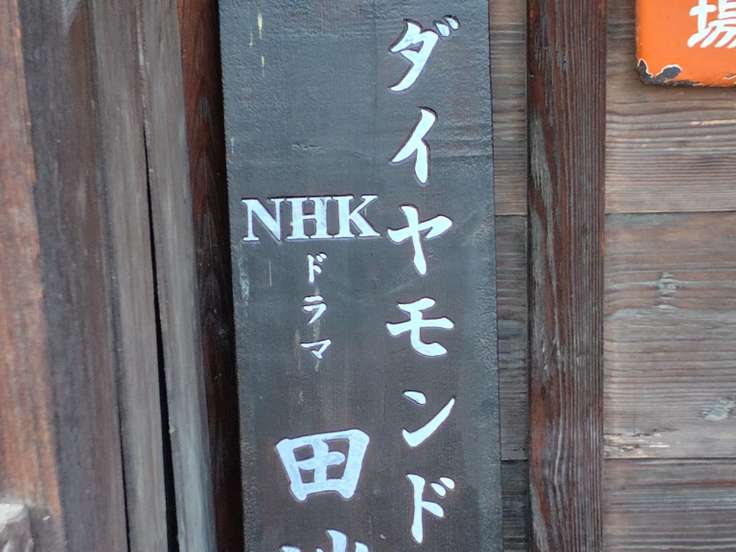 ダイヤモンド
NHK
ドラマ
田
場